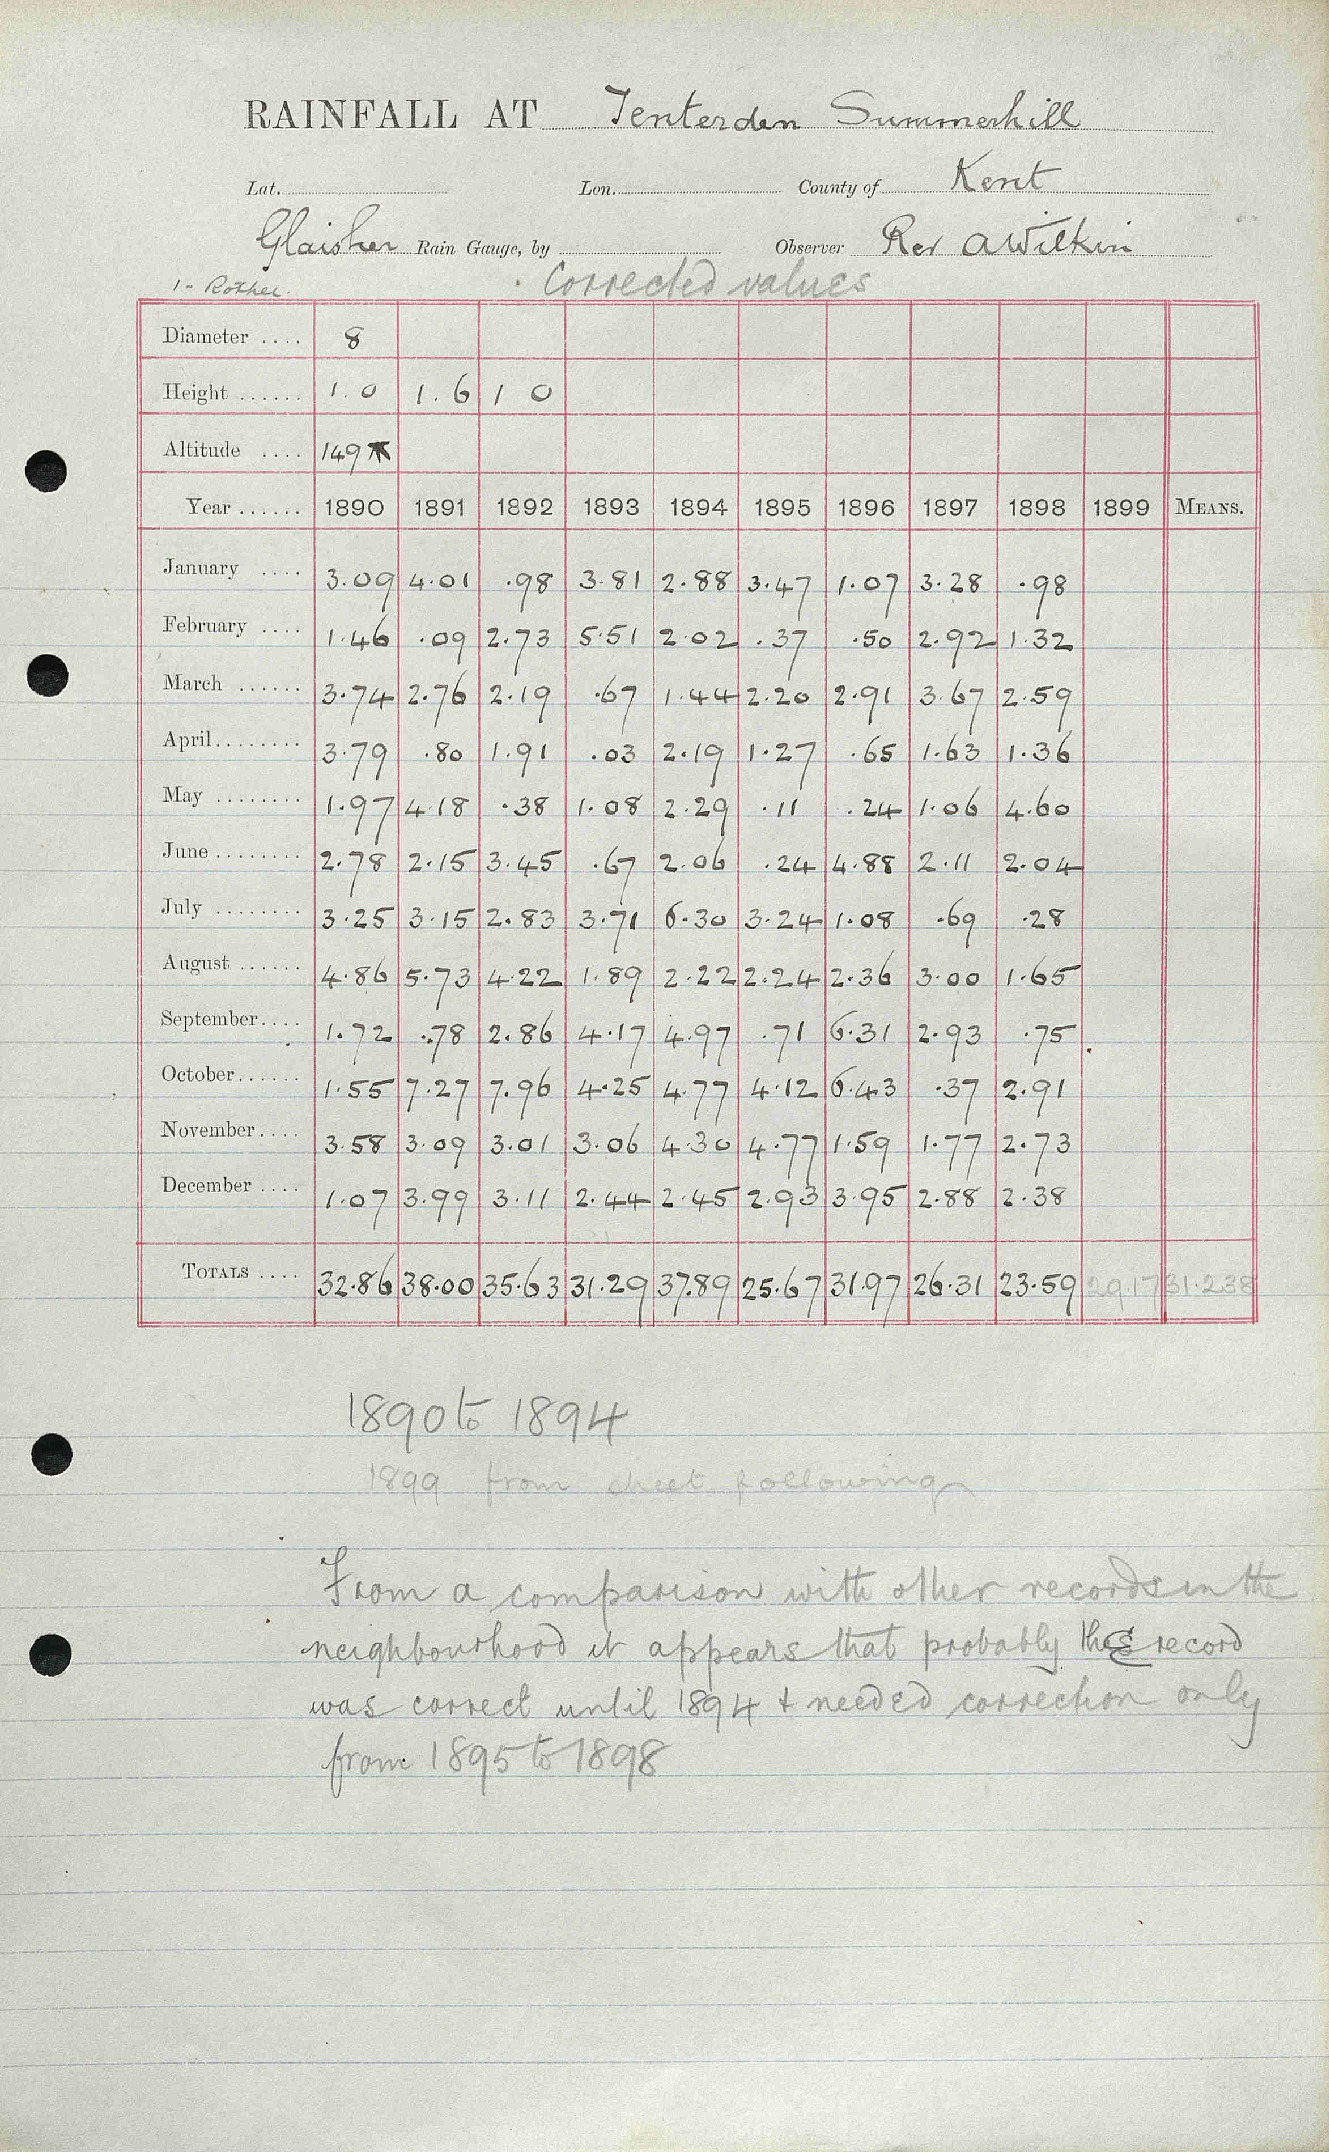 RAINFALL AT Tenterden Summerhill
Lat. Lon. County of Kent
Glaisher Rain Gauge, by Observer Rev A Wilkin
1 - Rother. Corrected values
Diameter .... 8
Height ...... 1.0 1.6 1 0
Altitude .... 149
Year ...... 1890 1891 1892 1893 1894 1895 1896 1897 1898 1899 MEANS.
January .... 3.09 4.01 .98 3.81 2.88 3.47 1.07 3.28 .98
February .... 1.46 .09 2.73 5.51 2.02 .37 .50 2.92 1.32
March ...... 3.74 2.76 2.19 .67 1.44 2.20 2.91 3.67 2.59
April........ 3.79 .80 1.91 .03 2.19 1.27 .65 1.63 1.36
May ........ 1.97 4.18 .38 1.08 2.29 .11 .24 1.06 4.60
June ........ 2.78 2.15 3.45 .67 2.06 .24 4.88 2.11 2.04
July ........ 3.25 3.15 2.83 3.71 6.30 3.24 1.08 .69 .28
August ...... 4.86 5.73 4.22 1.89 2.22 2.24 2.36 3.00 1.65
September.... 1.72 .78 2.86 4.17 4.97 .71 6.31 2.93 .75
October...... 1.55 7.27 7.96 4.25 4.77 4.12 6.43 .37 2.91
November.... 3.58 3.09 3.01 3.06 4.30 4.77 1.59 1.77 2.73
December .... 1.07 3.99 3.11 2.44 2.45 2.93 3.95 2.88 2.38
TOTALS .... 32.86 38.00 35.63 31.29 37.89 25.67 31.97 26.31 23.59 29.17 31.238
1890 to 1894
1899 from sheet following
From a comparison with other records in the
neighbourhood it appears that probably this record
was correct until 1894 & needed correction only
from 1895 to 1898